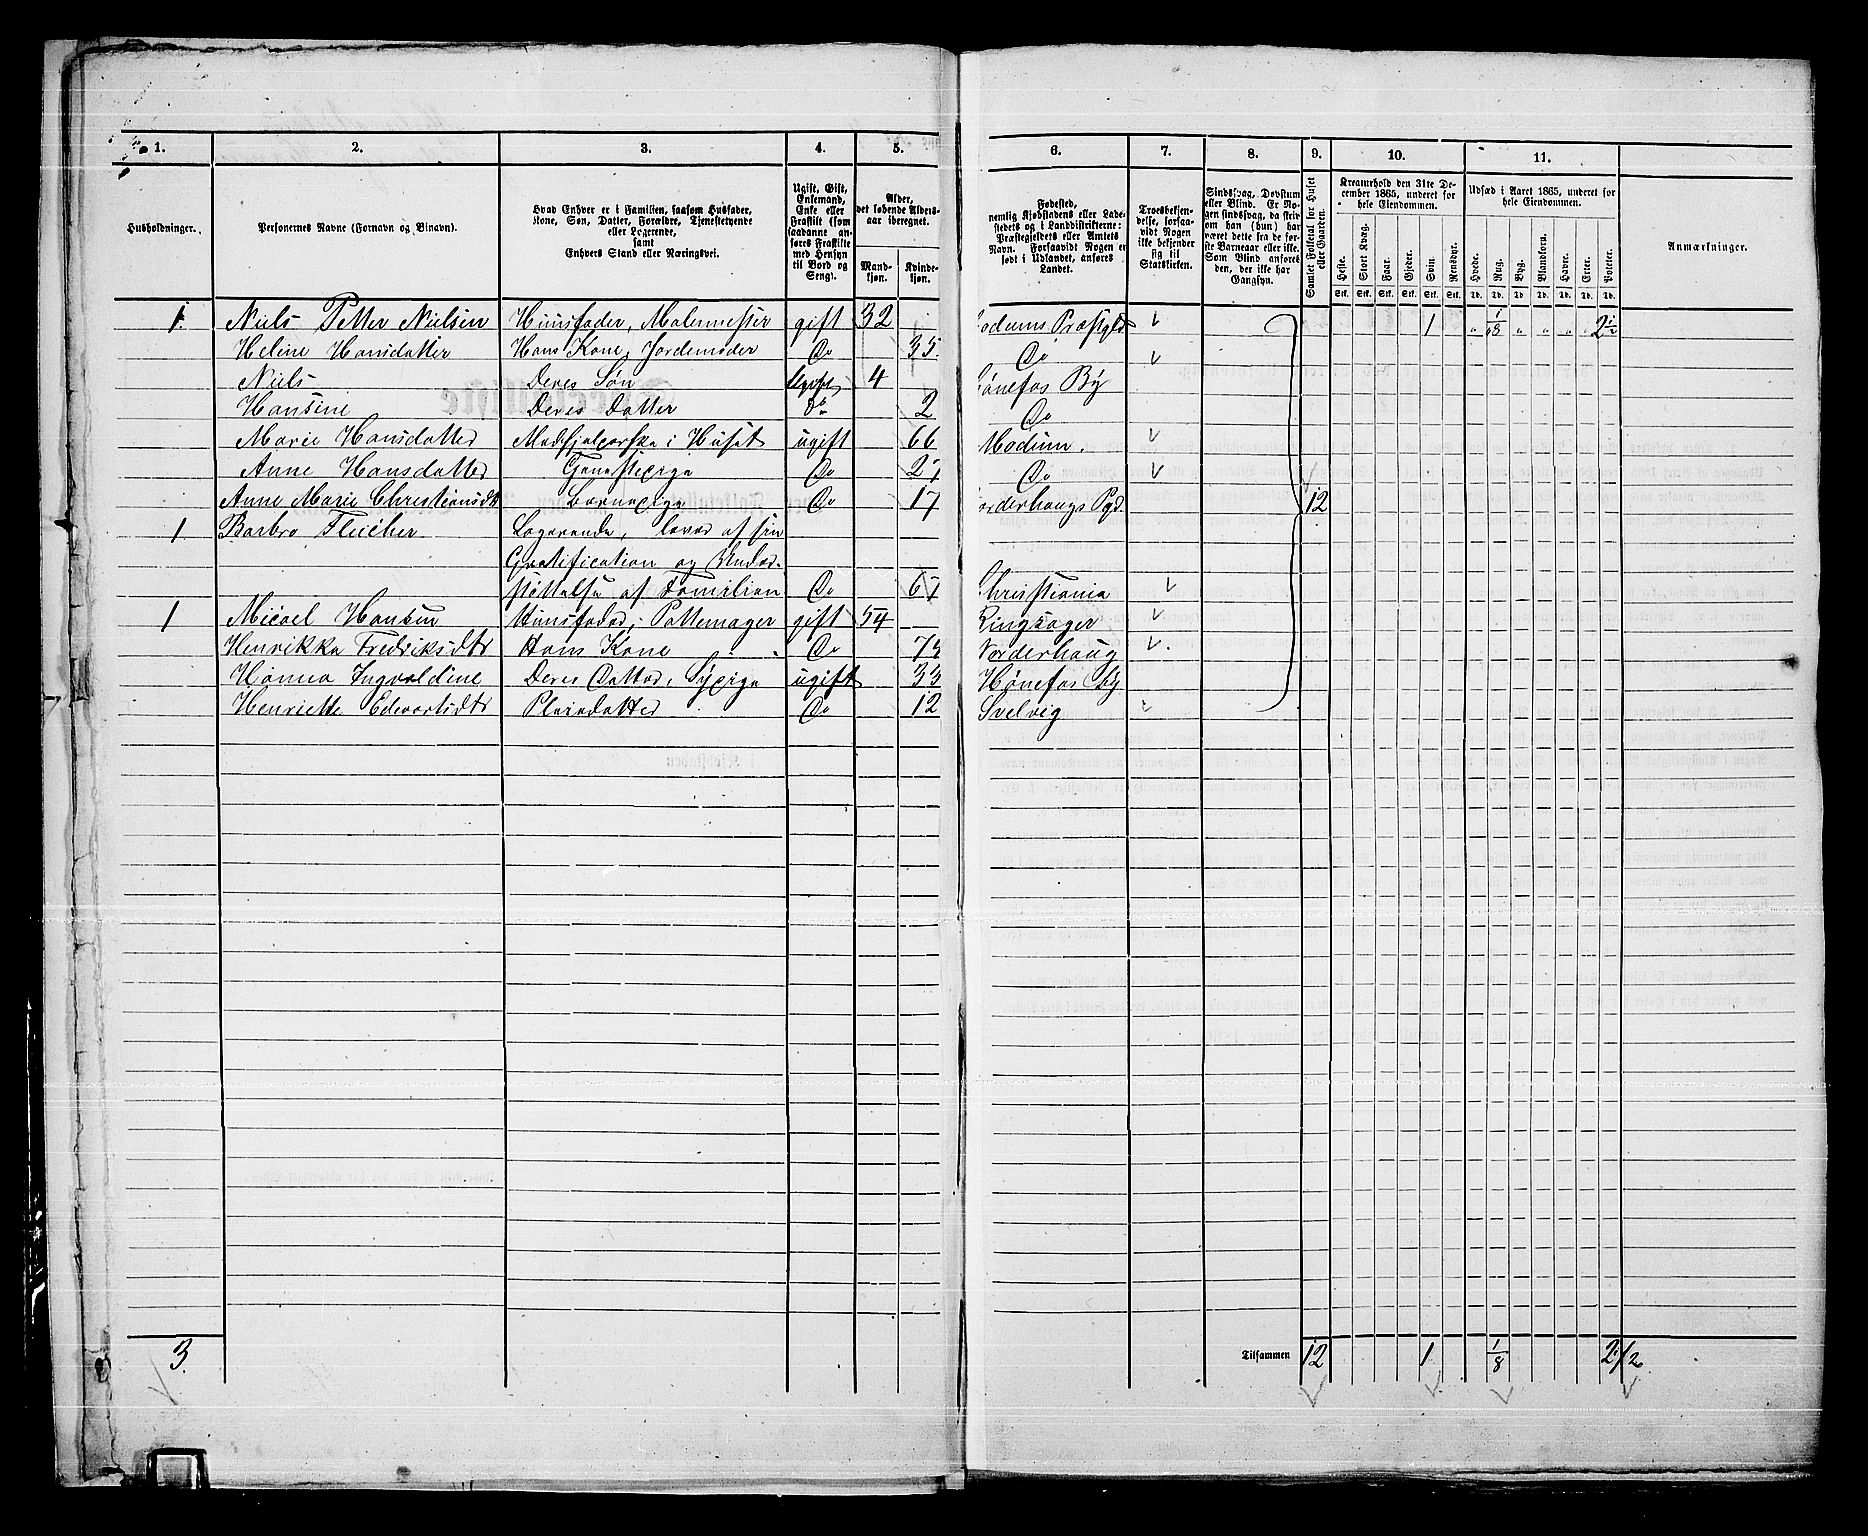 1. 2. 3. 4. 5. 6. 7. 8. 9. 10. 11.
Husholdninger.
Personernes Navne (Fornavn og Binavn).
Hvad Enhver er i Familien, saasom Husfader,
Kone, Søn, Datter, Forældre, Tjenestetyende
eller Logerende,
samt
Enhvers Stand eller Næringsvei.
Ugift, Gift,
Enkemand,
Enke eller
Fraskilt (som
saadanne an-
føres Fraskilte
med Hensyn
til Bord og
Seng).
Alder,
det løbende Alders-
aar iberegnet.
Mand-
kjøn.
Kvinde-
kjøn.
Fødested,
nemlig Kjøbstadens eller Lade-
stedets og i Landdistrikterne:
Præstegjeldets eller Amtets
Navn. Forsaavidt Nogen er
født i Udlandet, anføres
Landet.
Troesbekjen-
delse, forsaa-
vidt Nogen
ikke bekjender
sig til
Statskirken.
Sindssvag, Døvstum
eller Blind. Er No-
gen sindssvag, da skriv
om han (hun) har
været dette fra de før-
ste Barneaar eller ikke.
Som Blind anføres
den, der ikke har
Gangsyn.
Samlet Folketal for Huset
eller Gaarden.
Kreaturhold den 31te De-
cember 1865, underet for
hele Eiendommen.
Heste. Stort Kvæg. Faar. Gjeder. Svin. Rensdyr.
Stk. Stk. Stk. Stk. Stk. Stk.
Udsæd i Aaret 1865, underet for
hele Eiendommen.
Hvede. Rug. Byg. Blandkorn. Havre. Erter. Poteter.
Td. Td. Td. Td. Td. Td. Td.
Anmærkninger.
1 Niels Petter Nielsen Huusfader, Malermester gift 32 Modums Præstgld 1 1/8 2 1/2
Heline Hansdatter Hans Kone, Jordemoder Do 35 Do
Niels Deres Søn Ugift 4 Hønefos By
Hansine Deres Datter Do 2 Do
Marie Hansdatter Medhjelperske i Huset ugift 66 Modum
Anne Hansdatter Tjenestepige Do 27 Do
Anne Marie Christiansdtr Barnepige Do 17 Norderhougs Pgd. 12
1 Barbro Logerende, lever af sin
Gratification og Under-
støttelse af Familien Do 67 Christiania
1 Micael Hansen Huusfader, Pottemager gift 54 Ringsager
Henrikka Fredriksdtr Hans Kone Do Norderhoug
Hanna Ingvoldine Deres Datter, Sypige ugift 33 Hønefos By
Henriette Edvartsdtr Pleiedatter Do 12 Svelvig
3. Tilsammen 12 1 1/8 2 1/2